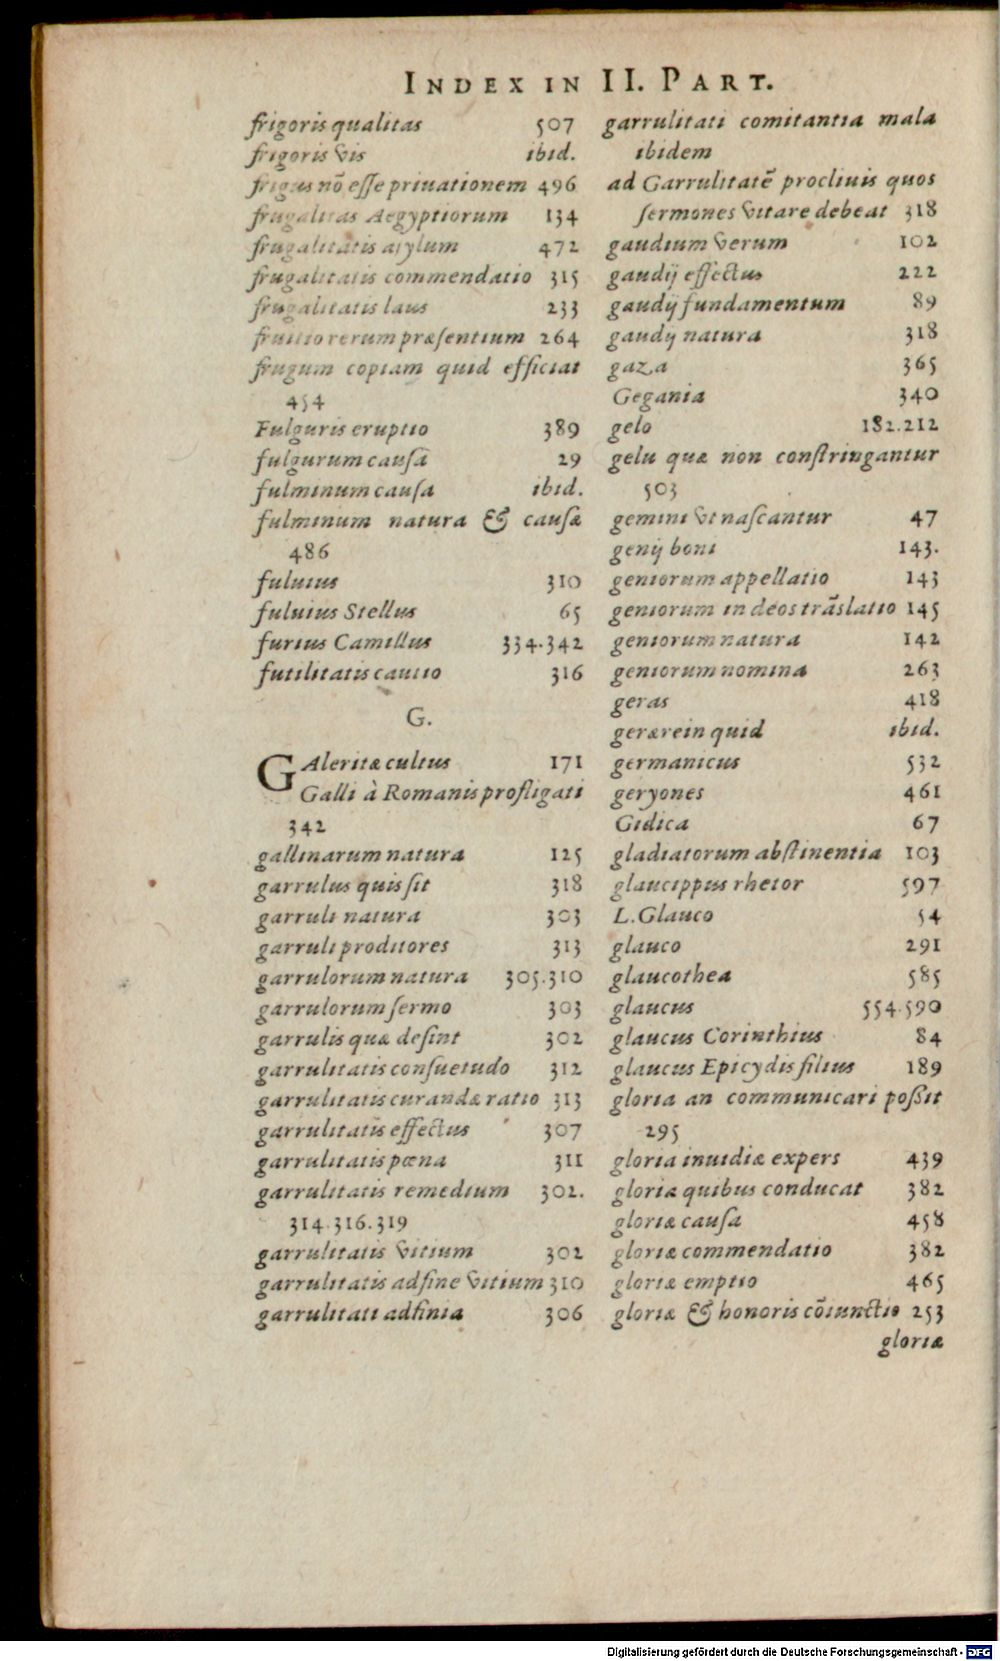 INDEX IN II. PART.
frigoris qualitas 507
frigoris vis ibid.
frigus nō eſſe priuationem 496
frugalitas Aegyptiorum 134
frugalitatis aſylum 472
frugalitatis commendatio 315
frugalitatis laus 233
fruitio rerum præſentium 264
frugum copiam quid efficiat
454
Fulguris eruptio 389
fulgurum cauſa 29
fulminum cauſa ibid.
fulminum natura & cauſæ
486
fuluius 310
fuluius Stellus 65
furius Camillus 334.342
futilitatis cautio 316
G.
GAleritæ cultus 171
Galli à Romanis profligati
342
gallinarum natura 125
garrulus quis ſit 318
garruli natura 303
garruli proditores 313
garrulorum natura 305.310
garrulorum ſermo 303
garrulis quæ deſint 302
garrulitatis conſuetudo 312
garrulitatis curandæ ratio 313
garrulitatis effectus 307
garrulitatis pœna 311
garrulitatis remedium 302.
314.316.319
garrulitatis vitium 302
garrulitatis adfine vitium 310
garrulitati adfinia 306
garrulitati comitantia mala
ibidem
ad Garrulitatē procliuis quos
ſermones vitare debeat 318
gaudium verum 102
gaudij effectus 222
gaudij fundamentum 89
gaudij natura 318
gaza 365
Gegania 340
gelo 182.212
gelu quæ non conſtringantur
503
gemini vt naſcantur 47
genij boni 143.
geniorum appellatio 143
geniorum in deos trāslatio 145
geniorum natura 142
geniorum nomina 263
geras 418
gerærein quid ibid.
germanicus 532
geryones 461
Gidica 67
gladiatorum abſtinentia 103
glaucippus rhetor 597
L.Glauco 54
glauco 291
glaucothea 585
glaucus 554.590
glaucus Corinthius 84
glaucus Epicydis filius 189
gloria an communicari poßit
295
gloria inuidiæ expers 439
gloria quibus conducat 382
gloriæ cauſa 458
gloriæ commendatio 382
gloriæ emptio 465
gloriæ & honoris cōiunctio 253
gloriæ
Digitalisierung gefördert durch die Deutsche Forschungsgemeinschaft - DFG